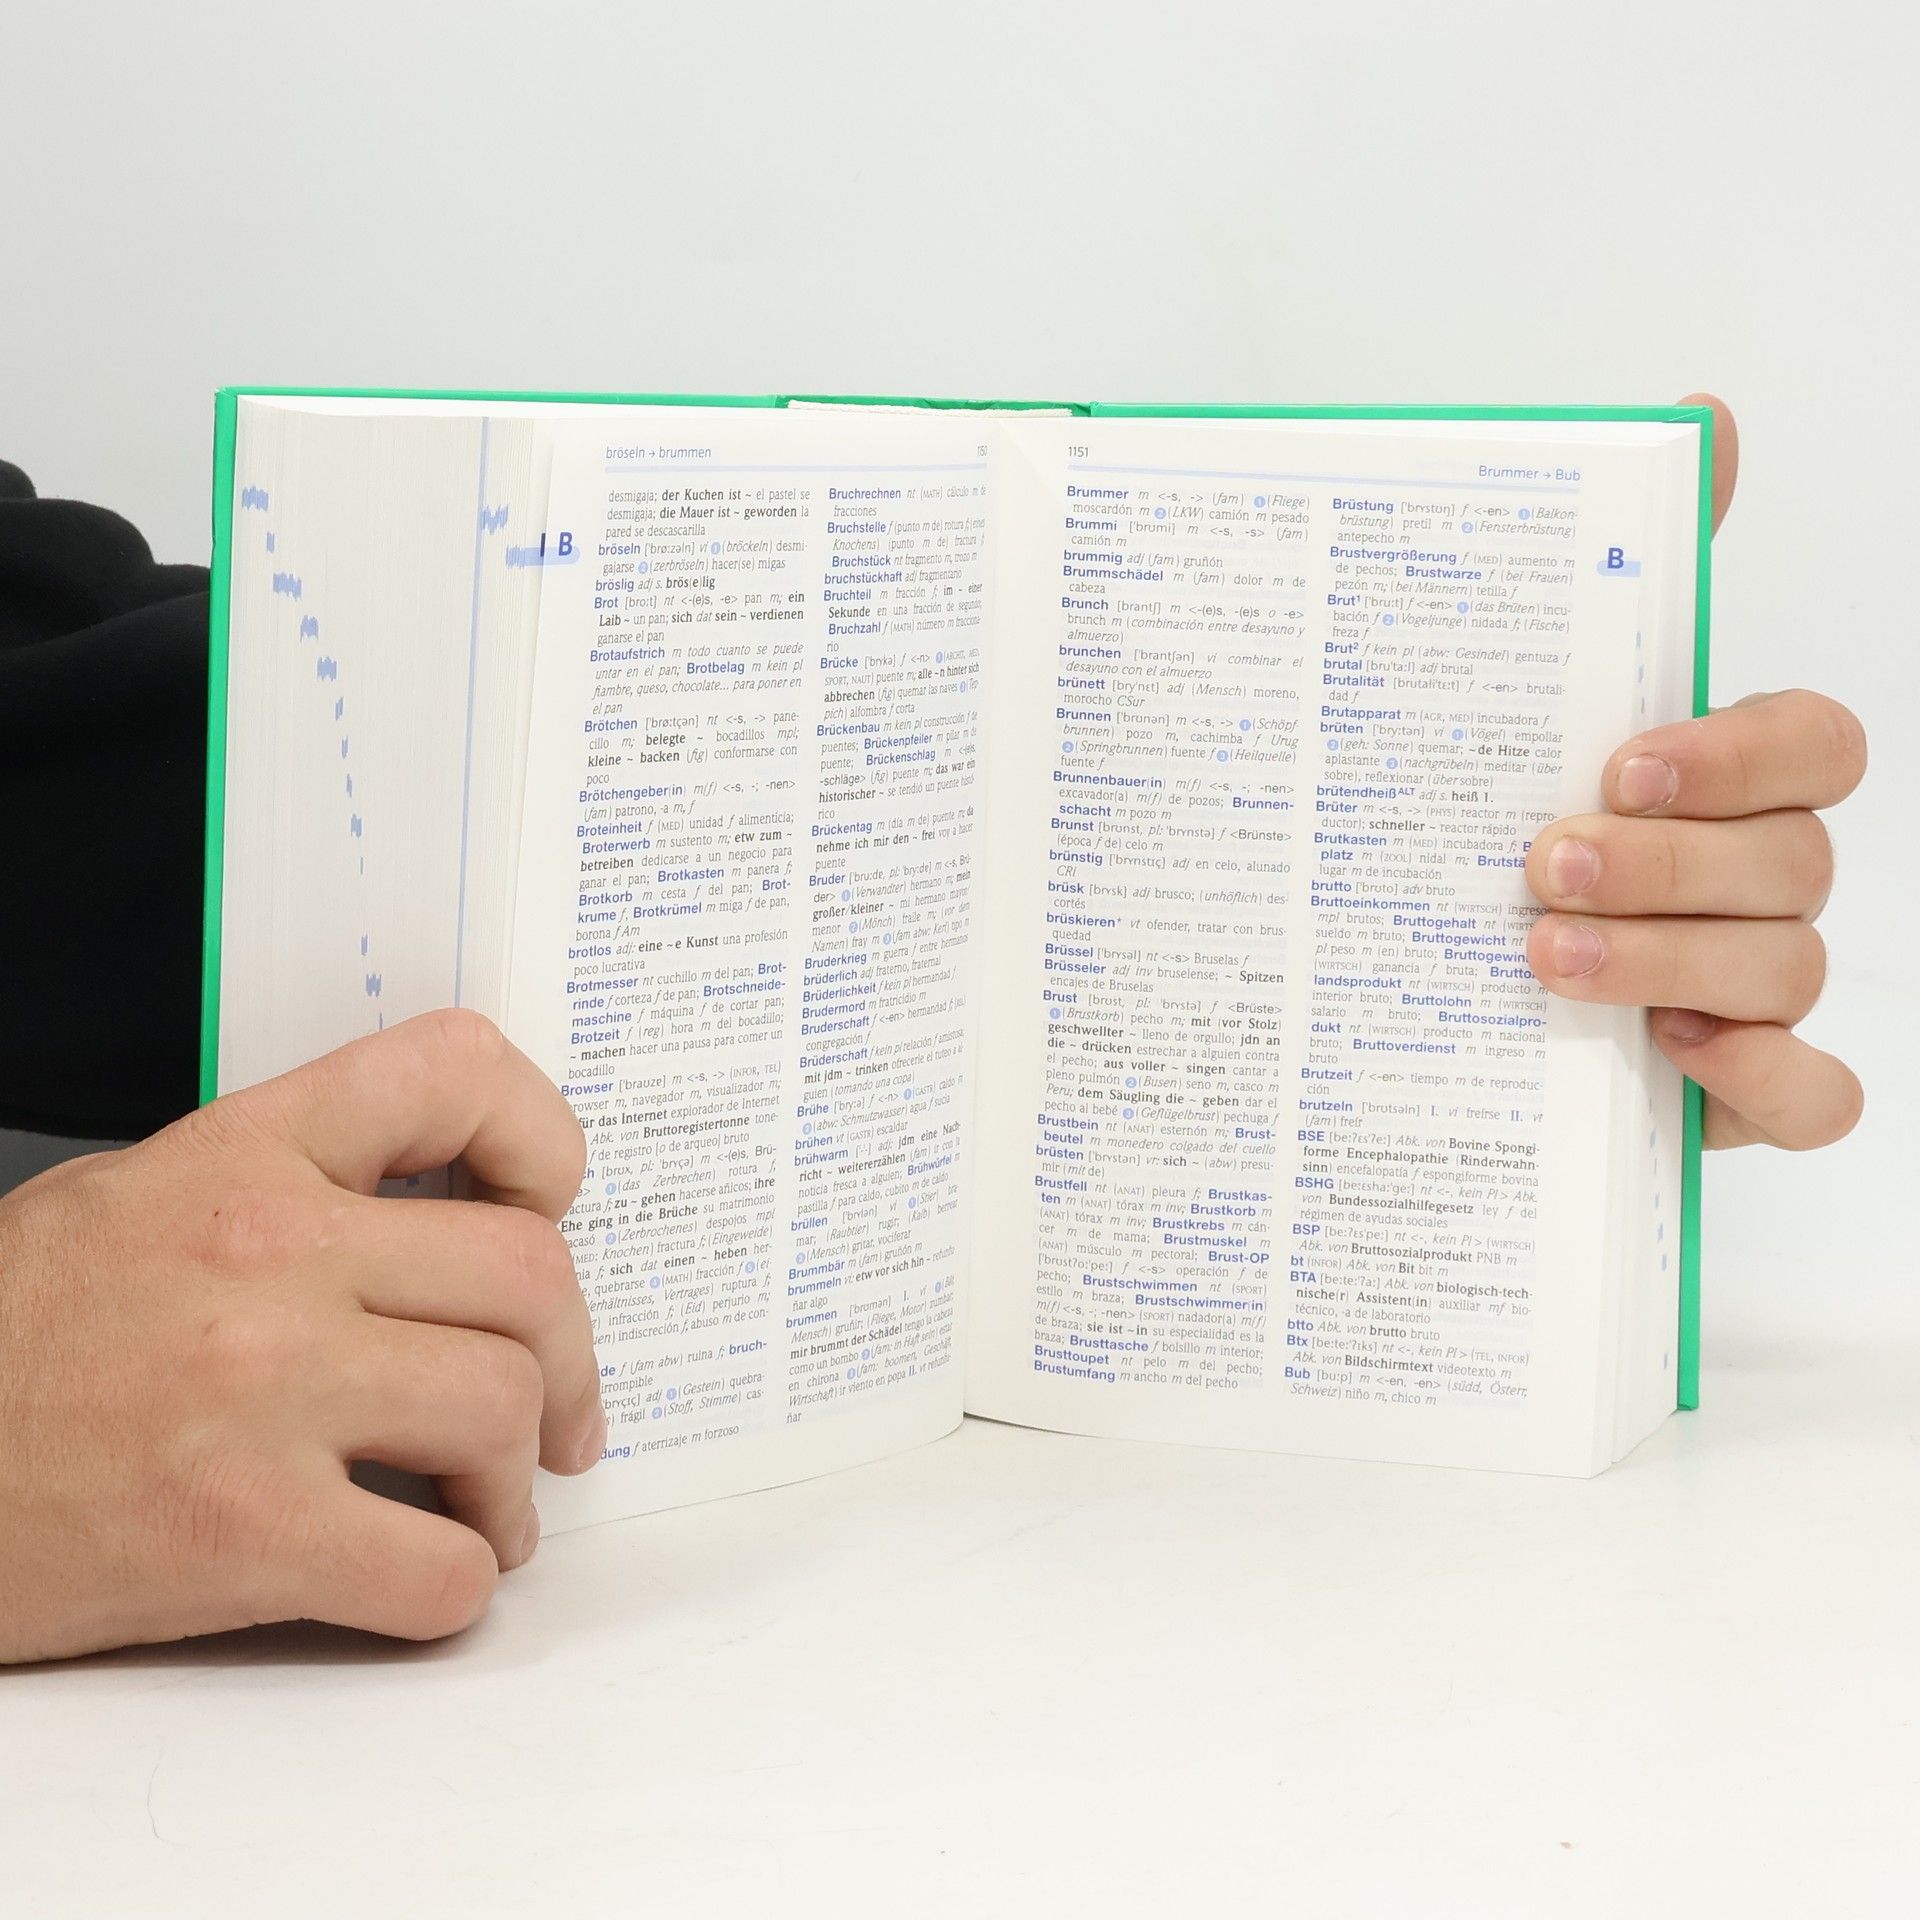 bröseln → brummen
B
desmigaja; der Kuchen ist ~ el pastel se
desmigaja; die Mauer ist ~ geworden la
pared se descascarilla
bröseln ['brø:zəln] vi ① (bröckeln) desmi-
gajarse ② (zerbröseln) hacer(se) migas
bröslig adj s. brös(e)lig
Brot [bro:t] nt <-(e)s, -e> pan m; ein
Laib ~ un pan; sich dat sein ~ verdienen
ganarse el pan
Brotaufstrich m todo cuanto se puede
untar en el pan; Brotbelag m kein pl
fiambre, queso, chocolate... para poner en
el pan
Brötchen ['brø:tçən] nt <-s, -> pane-
cillo m; belegte ~ bocadillos mpl;
kleine ~ backen (fig) conformarse con
poco
Brötchengeber(in) m(f) <-s, -; -nen>
(fam) patrono, -a m, f
Broteinheit f (MED) unidad f alimenticia;
Broterwerb m sustento m; etw zum ~
betreiben dedicarse a un negocio para
ganar el pan; Brotkasten m panera f;
Brotkorb m cesta f del pan; Brot-
krume f, Brotkrümel m miga f de pan,
borona f Am
brotlos adj: eine ~e Kunst una profesión
poco lucrativa
Brotmesser nt cuchillo m del pan; Brot-
rinde f corteza f de pan; Brotschneide-
maschine f máquina f de cortar pan;
Brotzeit f (reg) hora m del bocadillo;
~ machen hacer una pausa para comer un
bocadillo
Browser ['braʊzɐ] m <-s, -> (INFOR, TEL)
browser m, navegador m, visualizador m;
für das Internet explorador de Internet
Abk. von Bruttoregistertonne tone-
f de registro [o de arqueo] bruto
[brʊx, pl: 'brʏçə] m <-(e)s, Brü-
① (das Zerbrechen) rotura f,
fractura f; zu ~ gehen hacerse añicos; ihre
Ehe ging in die Brüche su matrimonio
② (Zerbrochenes) despojos mpl
(MED: Knochen) fractura f; (Eingeweide)
f; sich dat einen ~ heben her-
quebrarse ④ (MATH) fracción f ⑤ (ei-
Verhältnisses, Vertrages) ruptura f;
infracción f; (Eid) perjurio m;
indiscreción f, abuso m de con-
f (fam abw) ruina f; bruch-
['brʏçɪç] adj ① (Gestein) quebra-
frágil ② (Stoff, Stimme) cas-
f aterrizaje m forzoso
Bruchrechnen nt (MATH) cálculo m de
fracciones
Bruchstelle f (punto m de) rotura f; (eines
Knochens) (punto m de) fractura f
Bruchstück nt fragmento m, trozo m
bruchstückhaft adj fragmentario
Bruchteil m fracción f; im ~ einer
Sekunde en una fracción de segundo,
Bruchzahl f (MATH) número m fracciona-
rio
Brücke ['brʏkə] f <-n> ① (ARCHIT, MED,
SPORT, NAUT) puente m; alle ~n hinter sich
abbrechen (fig) quemar las naves ② (Tep-
pich) alfombra f corta
Brückenbau m kein pl construcción f de
puentes; Brückenpfeiler m pilar m de
puente; Brückenschlag m <-(e)s,
-schläge> (fig) puente m; das war ein
historischer ~ se tendió un puente histó-
rico
Brückentag m (día m de) puente m; da
nehme ich mir den ~ frei voy a hacer
puente
Bruder ['bru:dɐ, pl: 'bry:dɐ] m <-s, Brü-
der> ① (Verwandter) hermano m; mein
großer/kleiner ~ mi hermano mayor/
menor ② (Mönch) fraile m; (vor dem
Namen) fray m ③ (fam abw: Kerl) tipo m
Bruderkrieg m guerra f entre hermanos
brüderlich adj fraterno, fraternal
Brüderlichkeit f kein pl hermandad f
Brudermord m fratricidio m
Bruderschaft f <-en> hermandad f; (REL)
congregación f
Brüderschaft f kein pl relación f amistosa;
mit jdm ~ trinken ofrecerle el tuteo a al-
guien (tomando una copa)
Brühe ['bry:ə] f <-n> ① (GASTR) caldo m
② (abw: Schmutzwasser) agua f sucia
brühen vt (GASTR) escaldar
brühwarm ['-'-] adj: jdm eine Nach-
richt ~ weitererzählen (fam) ir con la
noticia fresca a alguien; Brühwürfel m
pastilla f para caldo, cubito m de caldo
brüllen ['brʏlən] vi ① (Stier) bra-
mar; (Raubtier) rugir; (Kalb) berrear
② (Mensch) gritar, vociferar
Brummbär m (fam) gruñón m
brummeln vi: etw vor sich hin ~ refunfu-
ñar algo
brummen ['brʊmən] I. vi ① (Bär,
Mensch) gruñir; (Fliege, Motor) zumbar;
mir brummt der Schädel tengo la cabeza
como un bombo ② (fam: in Haft sein) estar
en chirona ③ (fam: boomen, Geschäft,
Wirtschaft) ir viento en popa II. vt refunfu-
ñar
1151
Brummer → Bub
B
Brummer m <-s, -> (fam) ① (Fliege)
moscardón m ② (LKW) camión m pesado
Brummi ['brʊmi] m <-s, -s> (fam)
camión m
brummig adj (fam) gruñón
Brummschädel m (fam) dolor m de
cabeza
Brunch [brantʃ] m <-(e)s, -(e)s o -e>
brunch m (combinación entre desayuno y
almuerzo)
brunchen ['brantʃən] vi combinar el
desayuno con el almuerzo
brünett [bry'nɛt] adj (Mensch) moreno,
morocho CSur
Brunnen ['brʊnən] m <-s, -> ① (Schöpf-
brunnen) pozo m, cachimba f Urug
② (Springbrunnen) fuente f ③ (Heilquelle)
fuente f
Brunnenbauer(in) m(f) <-s, -; -nen>
excavador(a) m(f) de pozos; Brunnen-
schacht m pozo m
Brunst [brʊnst, pl: 'brʏnstə] f <Brünste>
(época f de) celo m
brünstig ['brʏnstɪç] adj en celo, alunado
CRi
brüsk [brʏsk] adj brusco; (unhöflich) des-
cortés
brüskieren* vt ofender, tratar con brus-
quedad
Brüssel ['brʏsəl] nt <-s> Bruselas f
Brüsseler adj inv bruselense; ~ Spitzen
encajes de Bruselas
Brust [brʊst, pl: 'brʏstə] f <Brüste>
① (Brustkorb) pecho m; mit (vor Stolz)
geschwellter ~ lleno de orgullo; jdn an
die ~ drücken estrechar a alguien contra
el pecho; aus voller ~ singen cantar a
pleno pulmón ② (Busen) seno m, casco m
Peru; dem Säugling die ~ geben dar el
pecho al bebé ③ (Geflügelbrust) pechuga f
Brustbein nt (ANAT) esternón m; Brust-
beutel m monedero colgado del cuello
brüsten ['brʏstən] vr: sich ~ (abw) presu-
mir (mit de)
Brustfell nt (ANAT) pleura f; Brustkas-
ten m (ANAT) tórax m inv; Brustkorb m
(ANAT) tórax m inv; Brustkrebs m cán-
cer m de mama; Brustmuskel m
(ANAT) músculo m pectoral; Brust-OP
['brʊstʔo:'pe:] f <-s> operación f de
pecho; Brustschwimmen nt (SPORT)
estilo m braza; Brustschwimmer(in)
m(f) <-s, -; -nen> (SPORT) nadador(a) m(f)
de braza; sie ist ~in su especialidad es la
braza; Brusttasche f bolsillo m interior;
Brusttoupet nt pelo m del pecho;
Brustumfang m ancho m del pecho
Brüstung ['brʏstʊŋ] f <-en> ① (Balkon-
brüstung) pretil m ② (Fensterbrüstung)
antepecho m
Brustvergrößerung f (MED) aumento m
de pechos; Brustwarze f (bei Frauen)
pezón m; (bei Männern) tetilla f
Brut¹ [bru:t] f <-en> ① (das Brüten) incu-
bación f ② (Vogeljunge) nidada f; (Fische)
freza f
Brut² f kein pl (abw: Gesindel) gentuza f
brutal [bru'ta:l] adj brutal
Brutalität [brutali'tɛ:t] f <-en> brutali-
dad f
Brutapparat m (AGR, MED) incubadora f
brüten ['bry:tən] vi ① (Vögel) empollar
② (geh: Sonne) quemar; ~de Hitze calor
aplastante ③ (nachgrübeln) meditar (über
sobre), reflexionar (über sobre)
brütendheißALT adj s. heiß 1.
Brüter m <-s, -> (PHYS) reactor m (repro-
ductor); schneller ~ reactor rápido
Brutkasten m (MED) incubadora f;
platz m (ZOOL) nidal m;
lugar m de incubación
brutto ['brʊto] adv bruto
Bruttoeinkommen nt (WIRTSCH) ingresos
mpl brutos; Bruttogehalt nt
sueldo m bruto; Bruttogewicht nt
pl peso m (en) bruto;
(WIRTSCH) ganancia f bruta;
landsprodukt nt (WIRTSCH) producto m
interior bruto; Bruttolohn m (WIRTSCH)
salario m bruto; Bruttosozialpro-
dukt nt (WIRTSCH) producto m nacional
bruto; Bruttoverdienst m ingreso m
bruto
Brutzeit f <-en> tiempo m de reproduc-
ción
brutzeln ['brʊtsəln] I. vi freírse II. vt
(fam) freír
BSE [be:ʔɛs'ʔe:] Abk. von Bovine Spongi-
forme Encephalopathie (Rinderwahn-
sinn) encefalopatía f espongiforme bovina
BSHG [be:ɛsha:'ge:] nt <-, kein Pl> Abk.
von Bundessozialhilfegesetz ley f del
régimen de ayudas sociales
BSP [be:ʔɛs'pe:] nt <-, kein Pl> (WIRTSCH)
Abk. von Bruttosozialprodukt PNB m
bt (INFOR) Abk. von Bit bit m
BTA [be:te:'ʔa:] Abk. von biologisch-tech-
nische(r) Assistent(in) auxiliar mf bio-
técnico, -a de laboratorio
btto Abk. von brutto bruto
Btx [be:te:'ʔɪks] nt <-, kein Pl> (TEL, INFOR)
Abk. von Bildschirmtext videotexto m
Bub [bu:p] m <-en, -en> (südd, Österr,
Schweiz) niño m, chico m